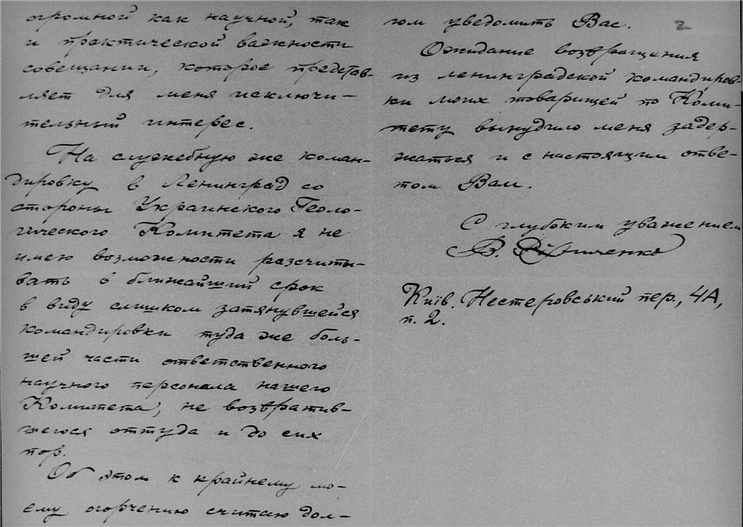 огромной как научной, так
и практической важности
совещании, которое представ-
ляет для меня исключи-
тельный интерес.
На служебную же коман-
дировку в Ленинград со
стороны Украинского Геоло-
гического Комитета я не
имею возможности рассчиты-
вать в ближайший срок
в виду слишком затянувшейся
командировки туда же боль-
шей части ответственного
научного персонала нашего
Комитета, не возвратив-
шегося оттуда и до сих
пор.
Об этом к крайнему мо-
ему огорчению считаю дол-
гом уведомить Вас.
2
Ожидание возвращения
из ленинградской командиров-
ки моих товарищей по Коми-
тету вынудило меня задер-
жаться и с настоящим отве-
том Вам.
С глубоким уважением
В. Різниченко
Київ. Нестеровський пер., 4А,
п. 2.